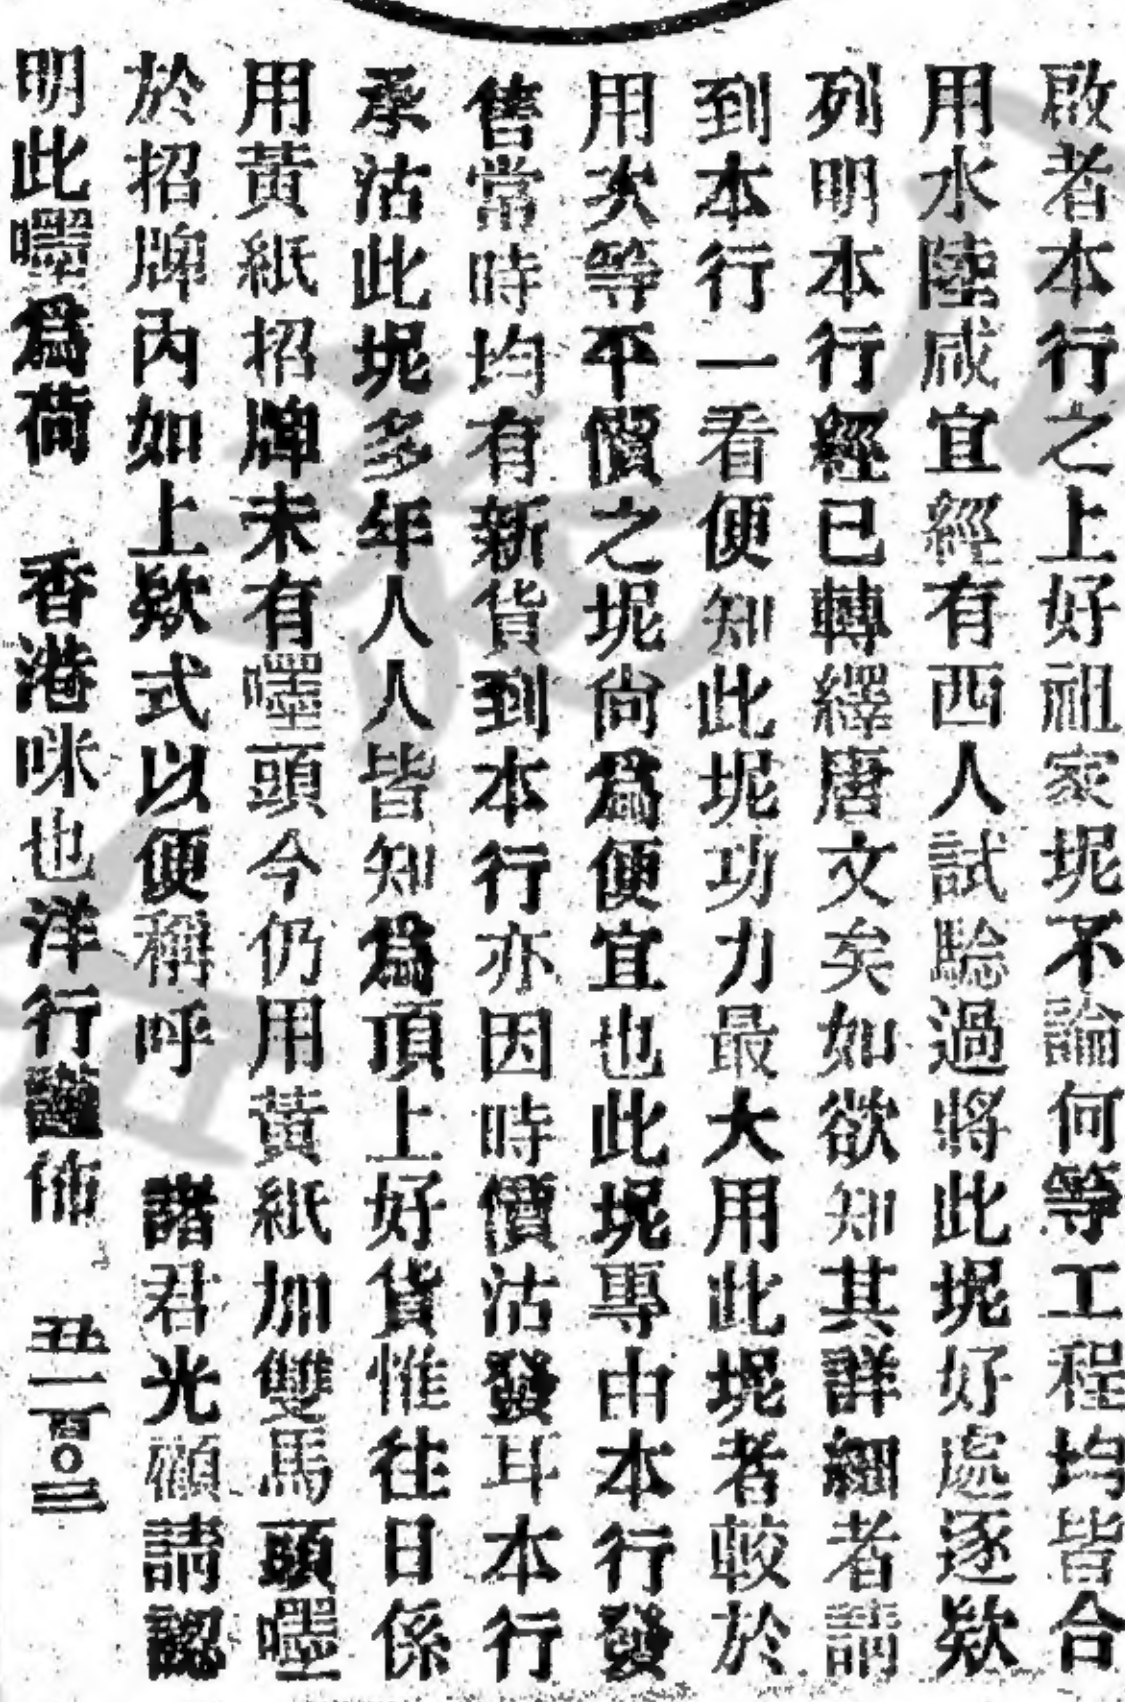 啟者本行之上好祖家坭不論何等工程均皆合
用水陸咸宜經有西人試騐過將此坭好處逐欵
列明本行經已轉繹唐文矣如欲知其詳細者請
到本行一看便知此坭功力最大用此坭者較於
用次等平價之坭尙爲便宜也此坭專由本行發
售常時均有新貨到本行亦因時價沽發耳本行
承沽此坭多年人人皆知爲頂上好貨惟往日係
用黃紙招牌未有嘜頭今仍用黃紙加雙馬頭嘜
於招牌內如上欵式以便稱呼 諸君光顧請認
明此嘜爲荷 香港咪也洋行謹佈 丑一百〇三